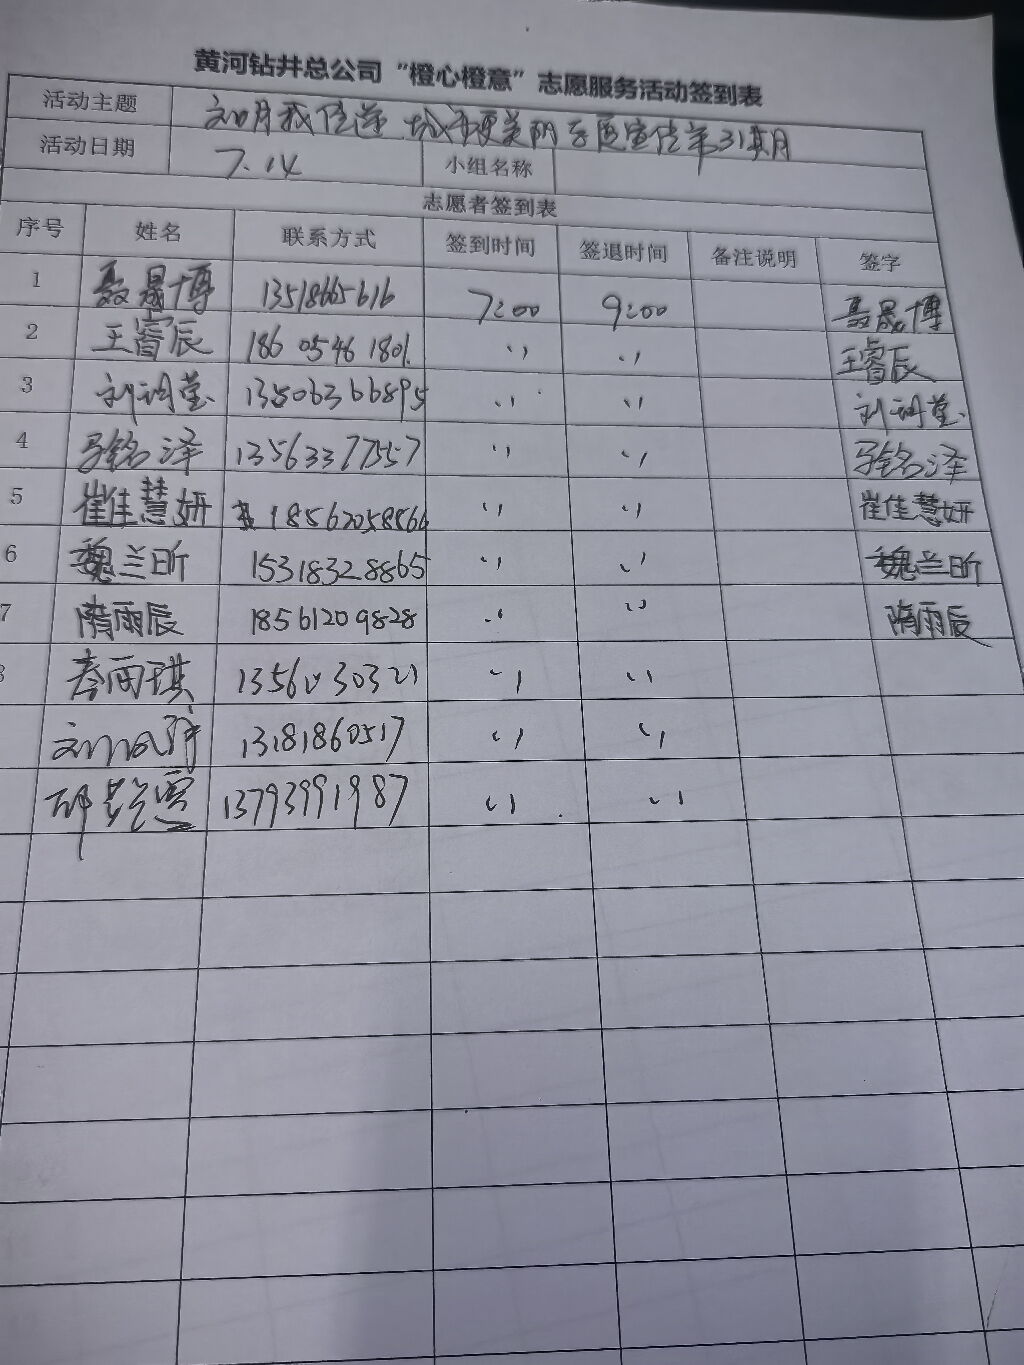 黄河钻井总公司“橙心橙意”志愿服务活动签到表
活动主题 文明我传递 城市更美丽 宣传第31期
活动日期 7.14 小组名称
志愿者签到表
序号 姓名 联系方式 签到时间 签退时间 备注说明 签字
1 聂晟博 13518665616 7:00 9:00 聂晟博
2 王睿辰 186 0546 1801 〃 〃 王睿辰
3 刘润莹 13506366895 〃 〃 刘润莹
4 马铭泽 13563377557 〃 〃 马铭泽
5 崔佳慧妍 18562058866 〃 〃 崔佳慧妍
6 魏兰昕 15318328865 〃 〃 魏兰昕
7 隋雨辰 18561209828 〃 〃 隋雨辰
秦雨琪 〃 〃
13181860517 〃 〃
13793991987 〃 〃